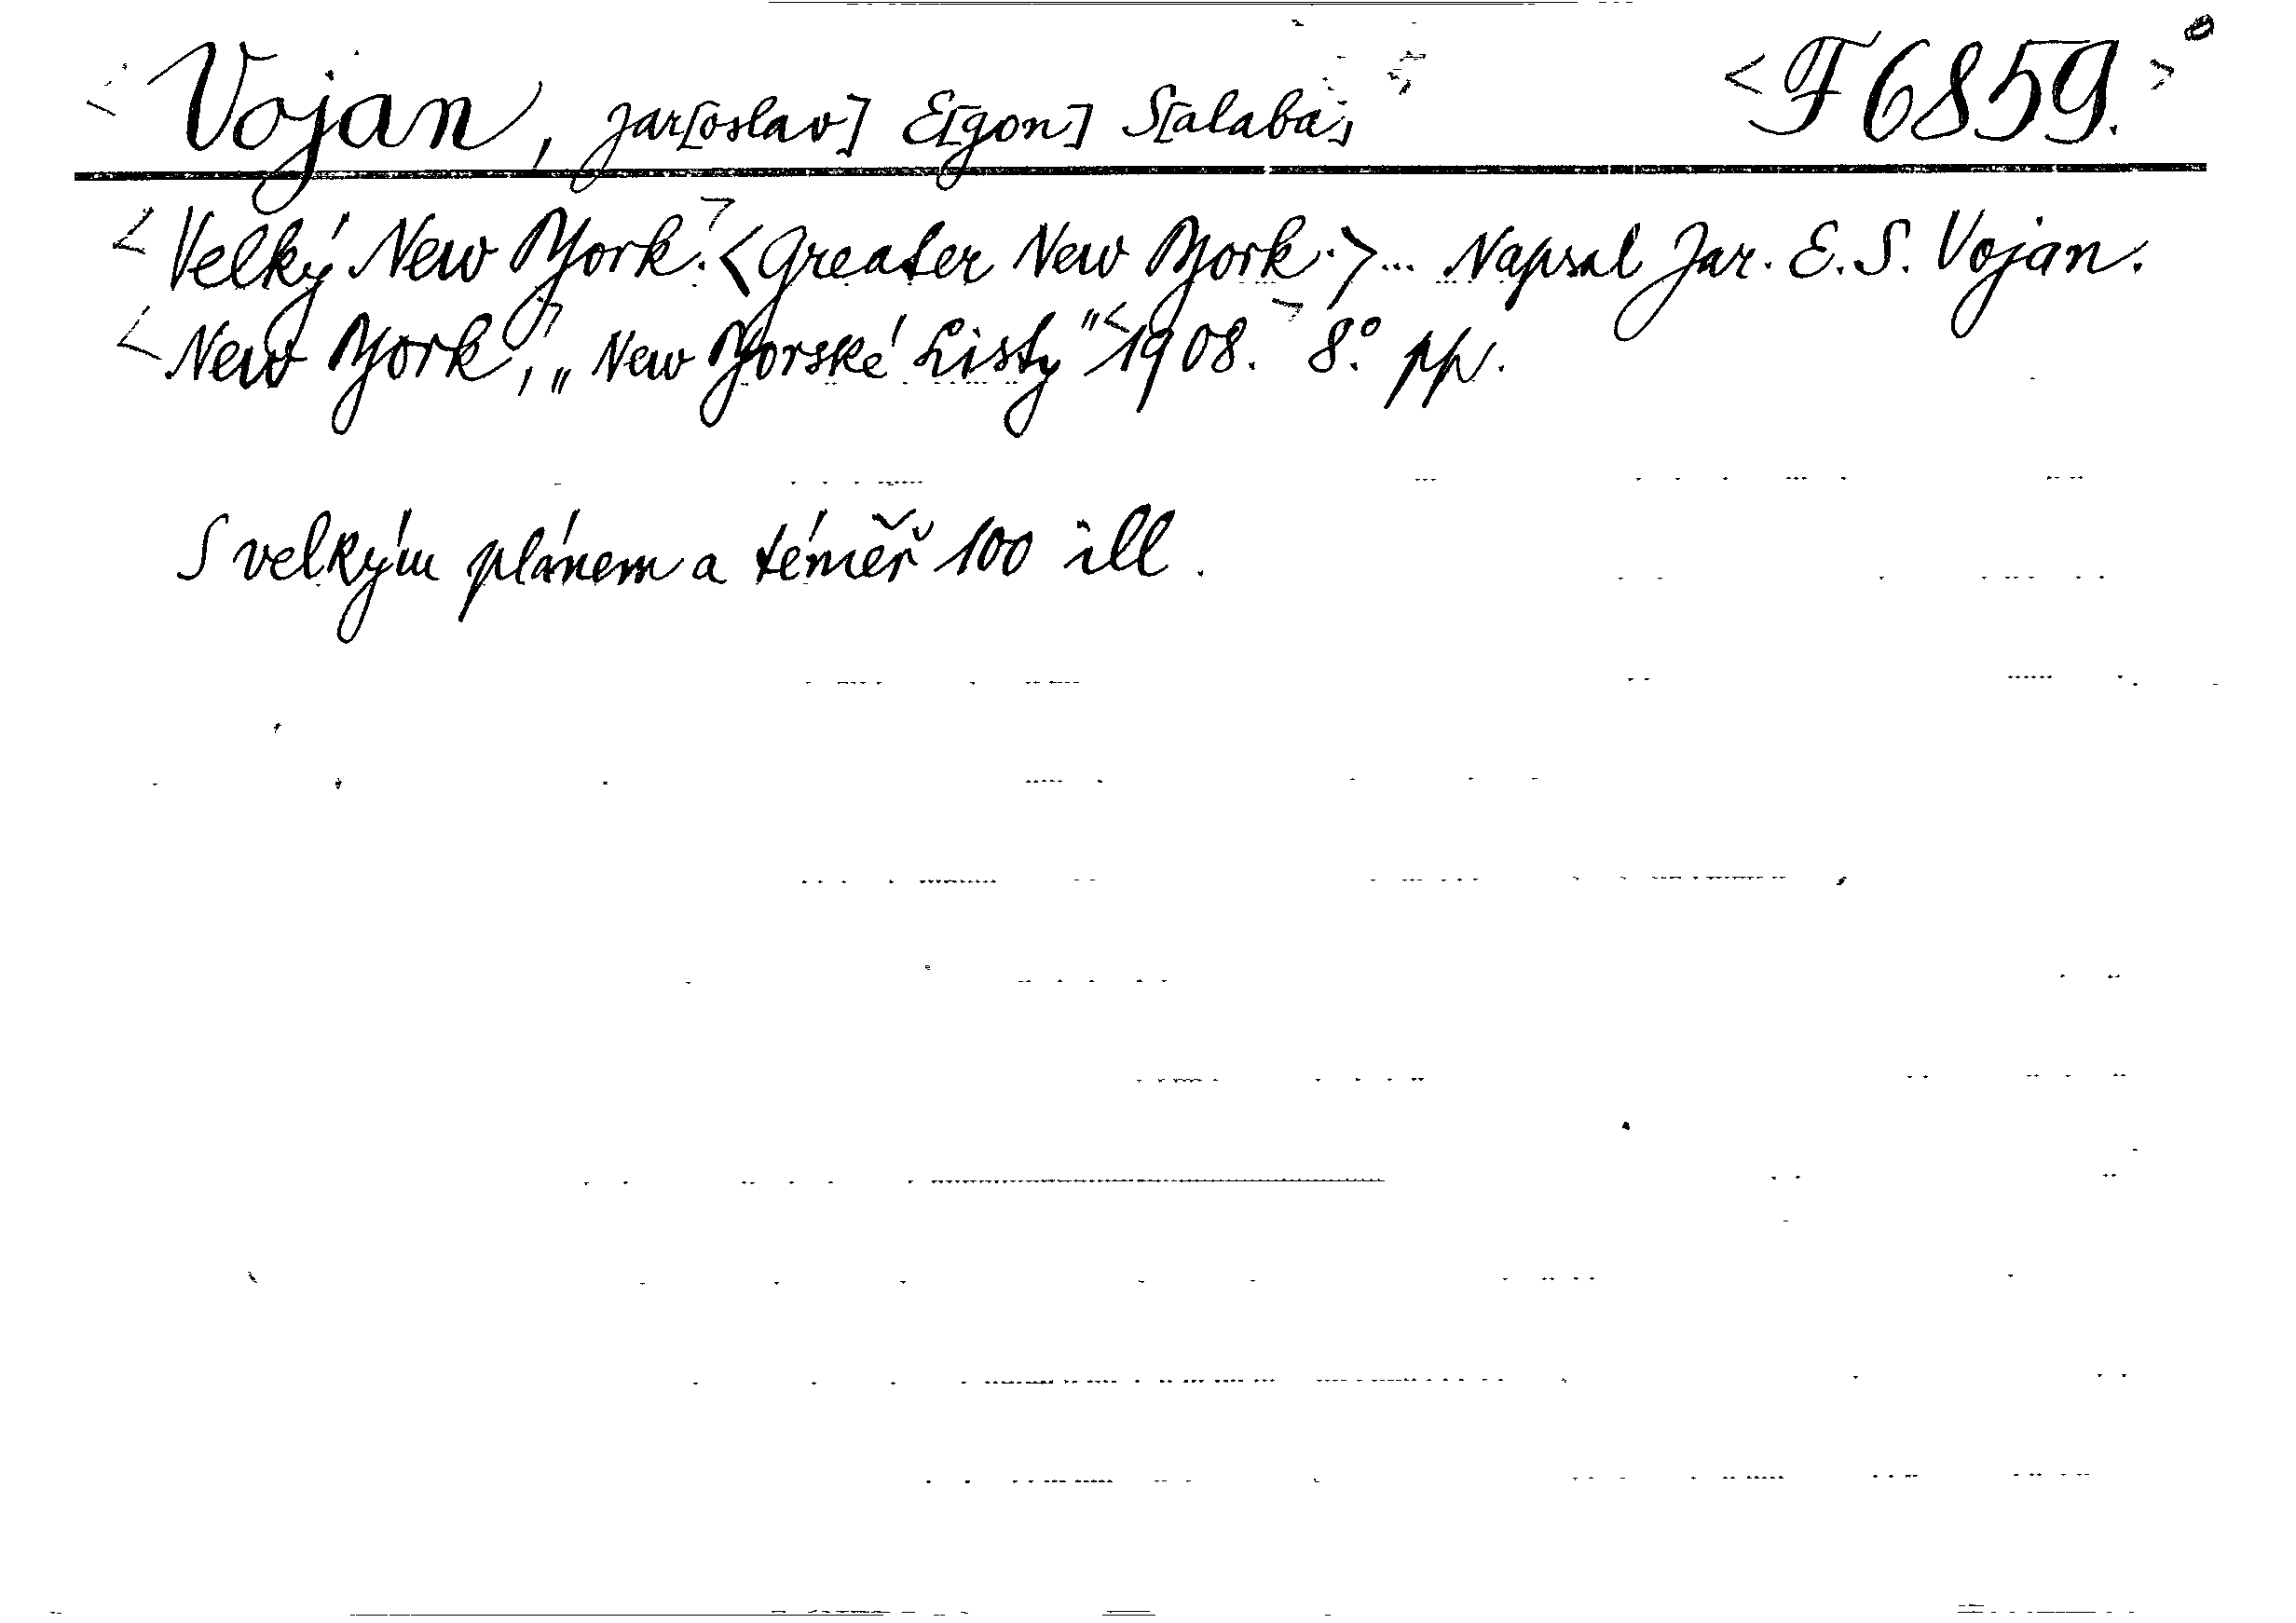 Vojan, Jar[oslav] E[gon] S[alaba] <F 6859.>
<Velký New York.> <Greater New York.> ... Napsal Jar. E. S. Vojan.
<New York,> „New Yorské Listy" <1908.> 8.° pp.
S velkým plánem a téměř 100 ill.